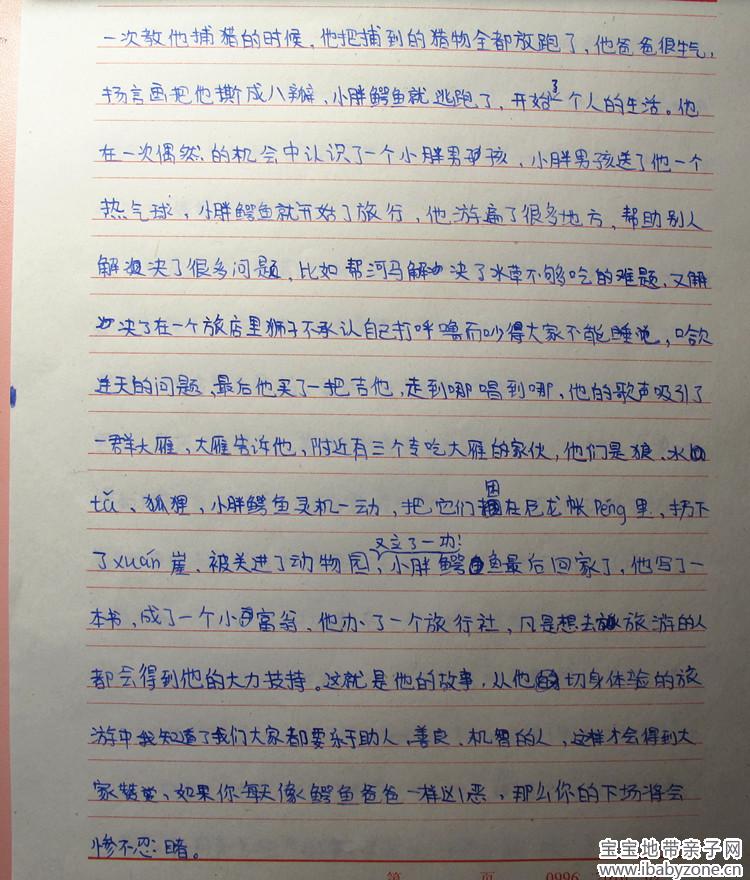 一次教他捕猎的时候，他把捕到的猎物全都放跑了，他爸爸很生气，
扬言要把他撕成八瓣，小胖鳄鱼就逃跑了，开始了一个人的生活。他
在一次偶然的机会中认识了一个小胖男孩，小胖男孩送了他一个
热气球，小胖鳄鱼就开始了旅行，他游遍了很多地方，帮助别人
解决了很多问题，比如帮河马解决了水草不够吃的难题，又解
决了在一个旅店里狮子不承认自己打呼噜而吵得大家不能睡觉，哈欠
连天的问题，最后他买了一把吉他，走到哪唱到哪，他的歌声吸引了
一群大雁，大雁告诉他，附近有三个专吃大雁的家伙，他们是狼、水
tǎ、狐狸，小胖鳄鱼灵机一动，把它们困在尼龙帐péng里，扔下
了xuán崖，被关进了动物园，又立了一功！小胖鳄鱼最后回家了，他写了一
本书，成了一个小富翁，他办了一个旅行社，凡是想去旅游的人
都会得到他的大力支持。这就是他的故事，从他切身体验的旅
游中我知道了我们大家都要乐于助人、善良、机智的人，这样才会得到大
家赞赏，如果你每天像鳄鱼爸爸一样凶恶，那么你的下场将会
惨不忍睹。
第 页 0996
宝宝地带亲子网
www.ibabyzone.cn